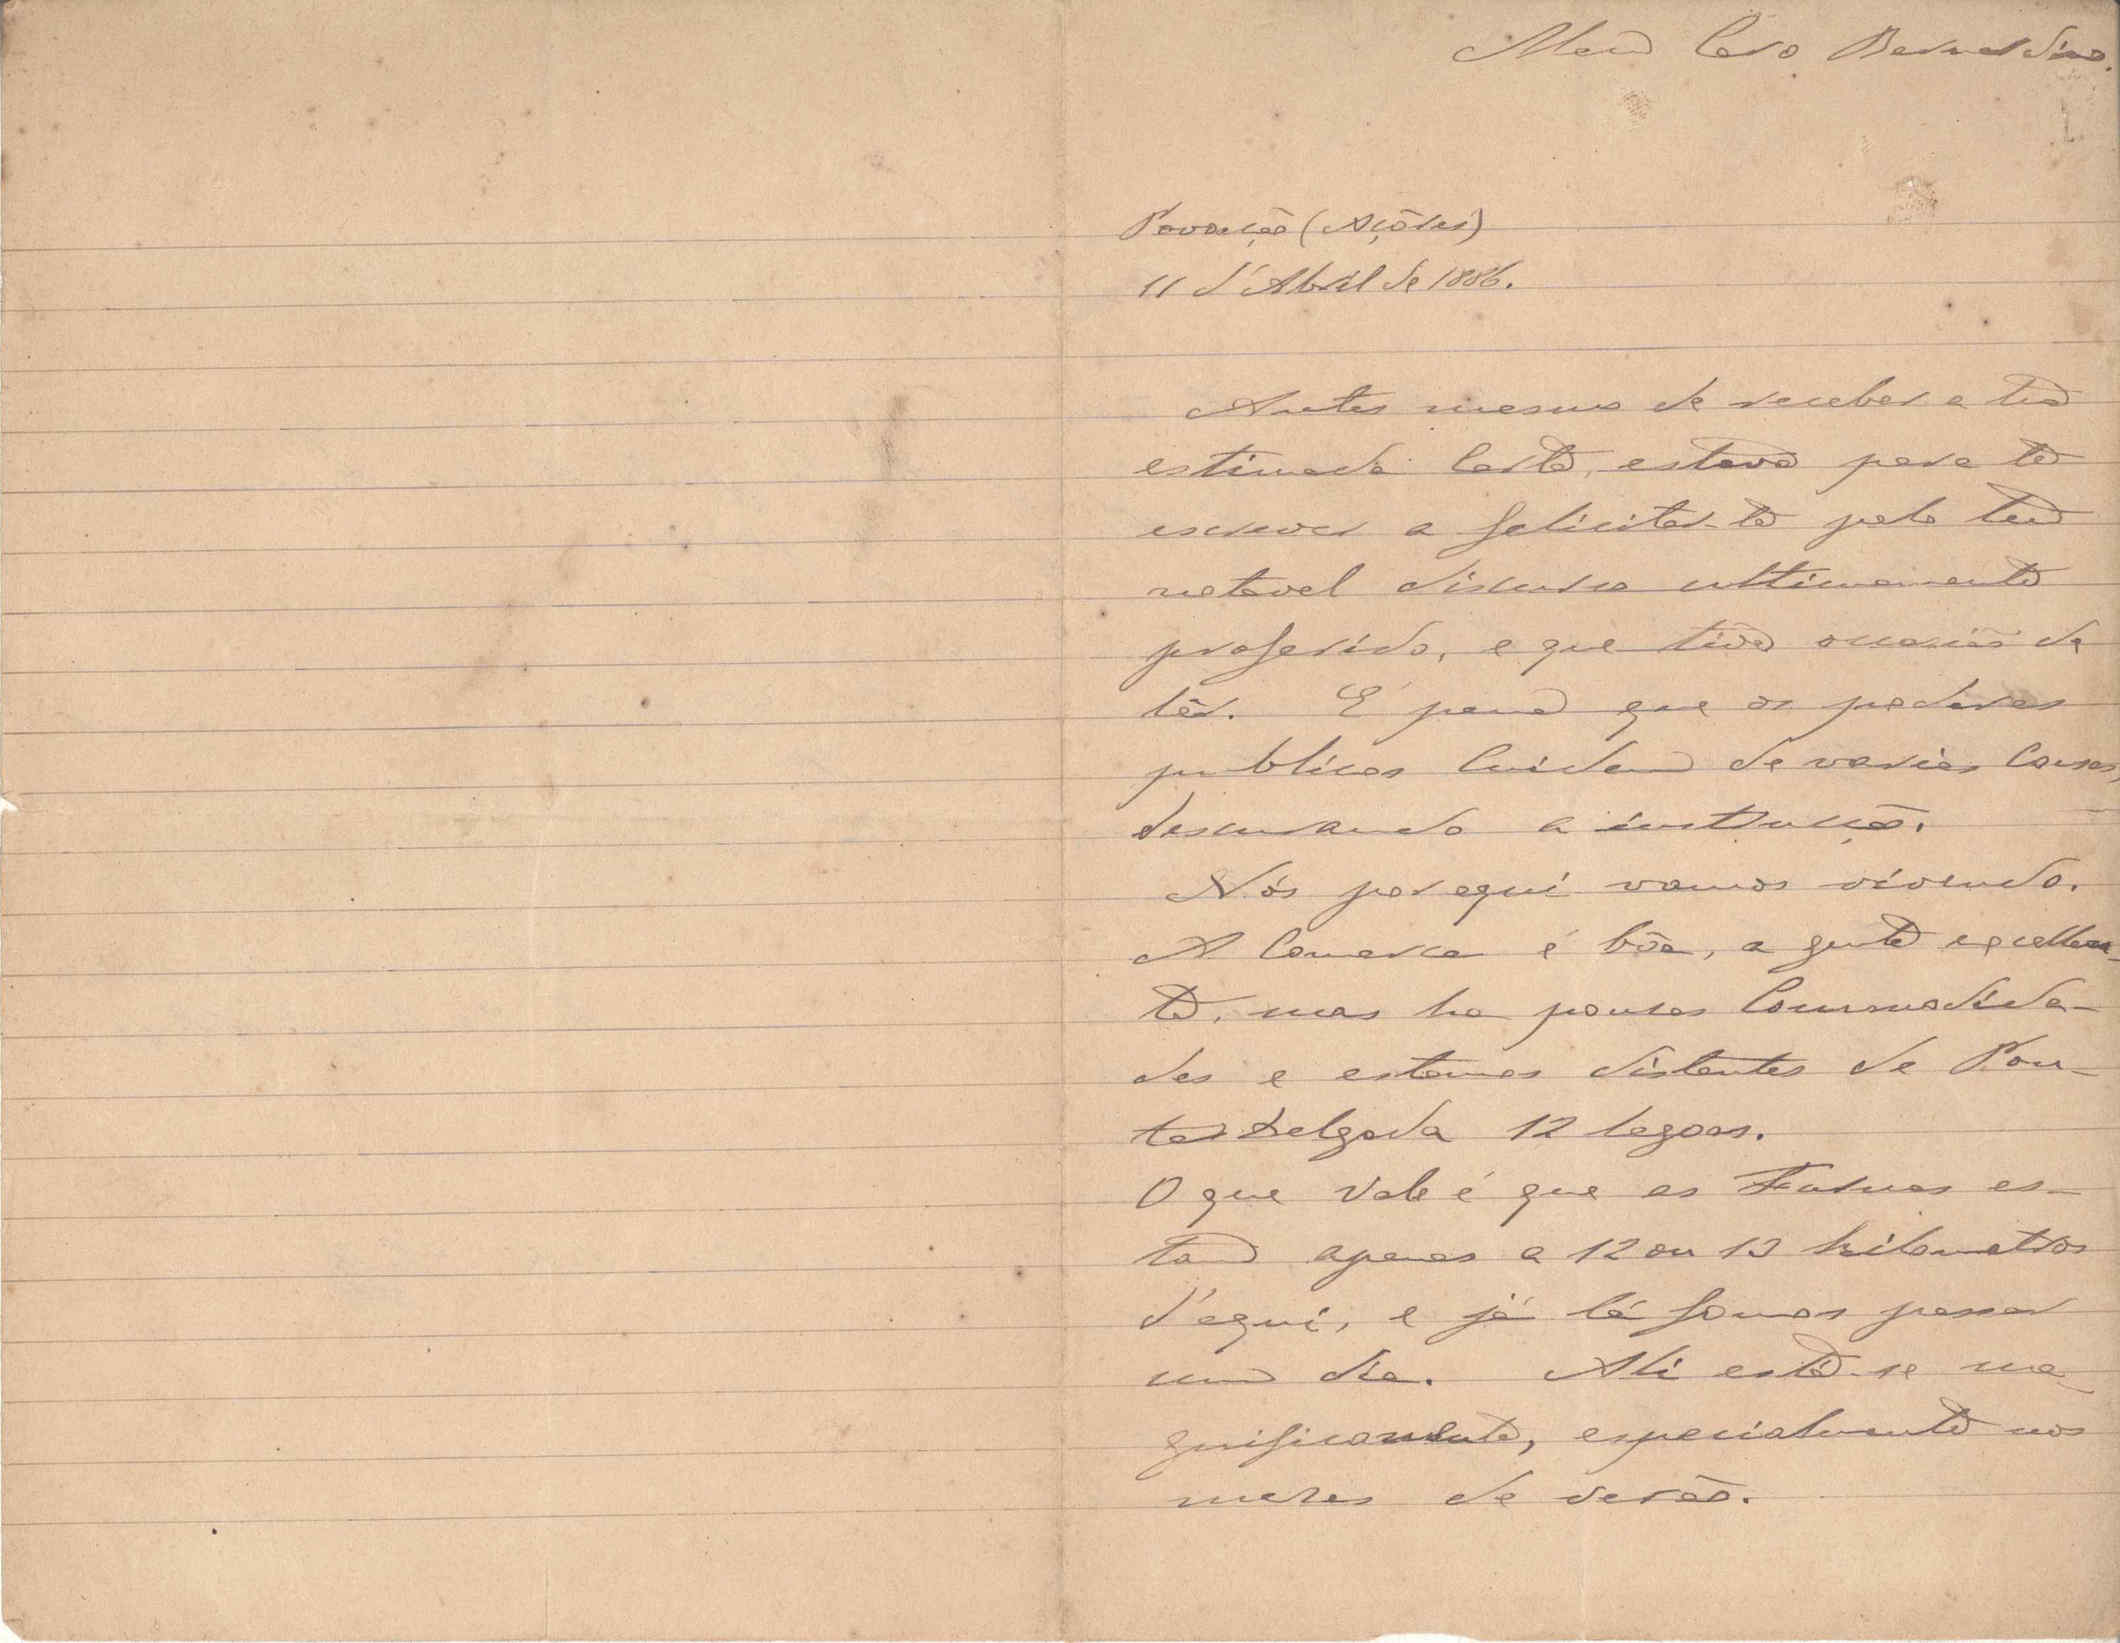 Meu Caro Bernardino.
Povoação (Açôres)
11 d'Abril de 1886.
Antes mesmo de receber a tua
estimada carta, estava para te
escrever a felicitar-te pelo teu
notavel discurso ultimamente
proferido, e que tive occasião de
lêr. É pena que os poderes
publicos cuidem de varias cousas,
descurando a instrucção.
Nós por aqui vamos vivendo.
A comarca é bôa, a gente excellen-
te, mas ha poucas commodida-
des e estamos distantes de Pon-
ta Delgada 12 legoas.
O que vale é que as Furnas es-
tam apenas a 12 ou 13 kilometros
d'aqui, e já lá fomos passar
um dia. Ali está-se ma-
gnificamente, especialmente nos
mezes de verão.